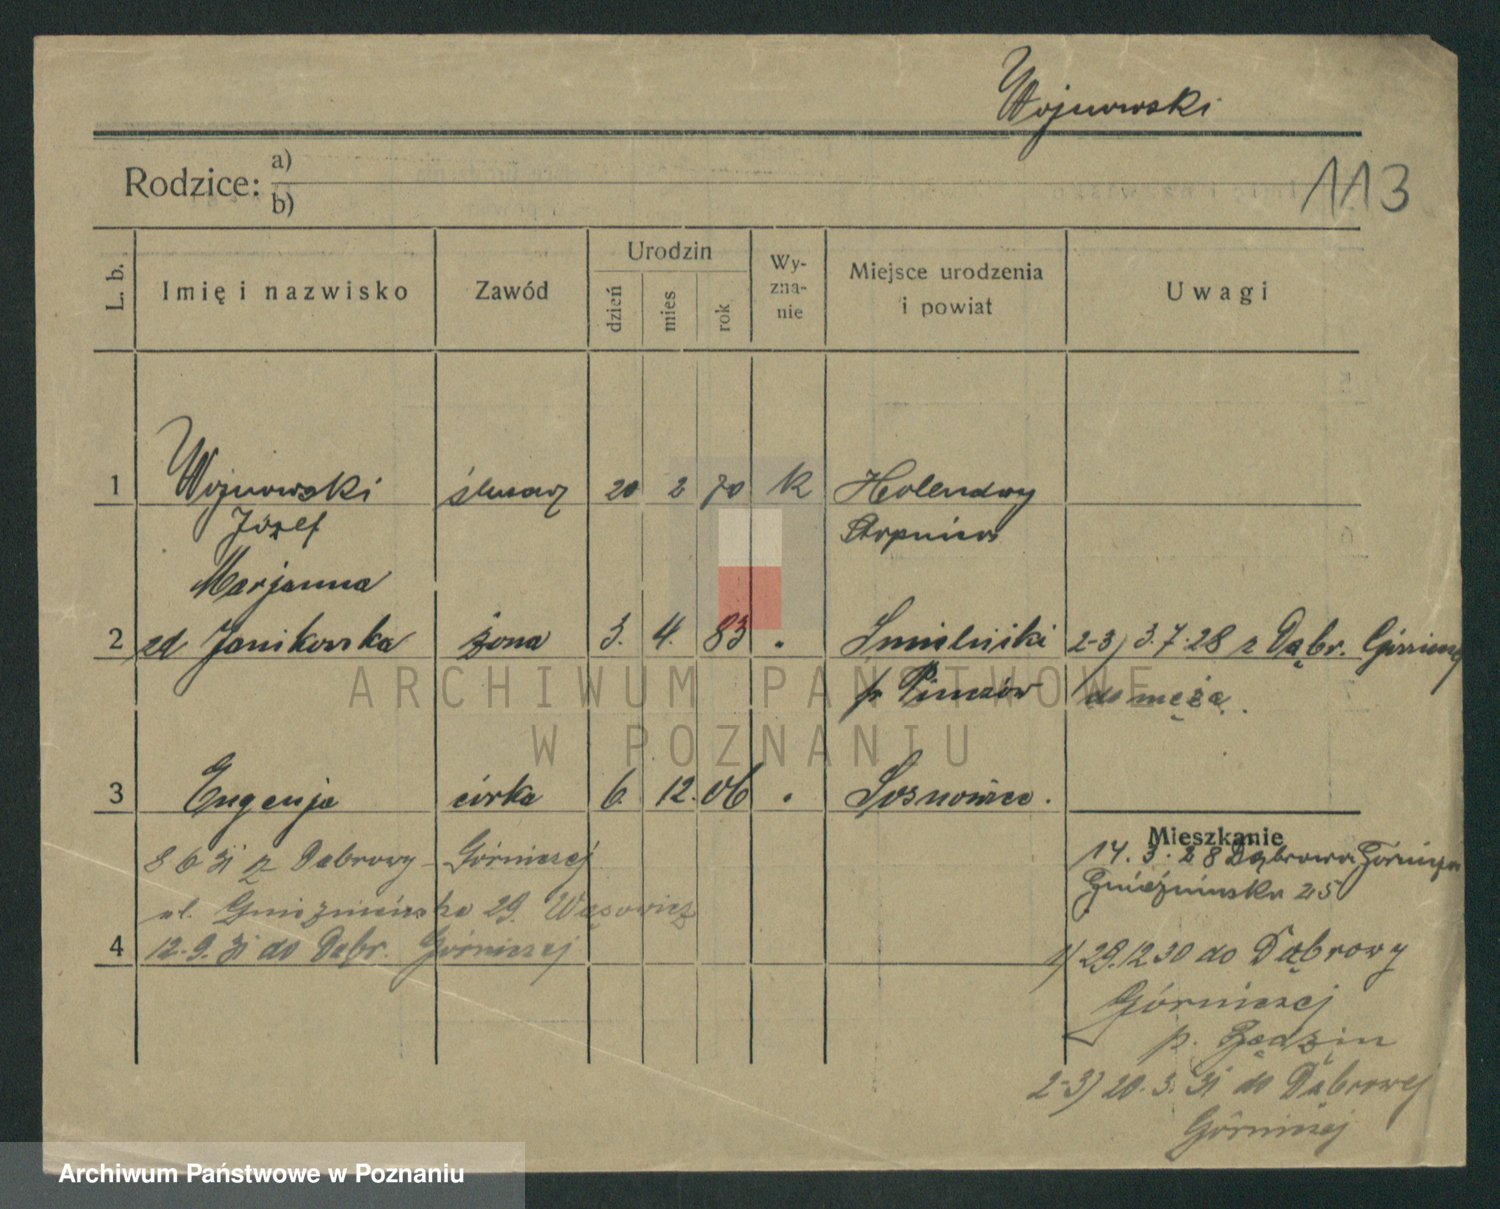 Wojnowski
113
Rodzice: a)
b)
L. b. Imię i nazwisko Zawód Urodzin dzień mies rok Wy-zna-nie Miejsce urodzenia i powiat Uwagi
1 Wojnowski ślusarz 20 2 70 K Holendry
Józef Stopnica
Marjanna
2 zd Janikowska żona 3. 4. 83 " 2-3) 3.7.28 z Dąbr. Górniczej
p. Pinczów do męża.
3 Eugenja córka 6. 12. 06 " Sosnowice.
Mieszkanie
14.3.28 Dąbrowa Górnicza
Gnieźnieńska 25
8 6 31 z Dąbrowy-Górniczej
ul. Gnieźnieńska 29 Wąsowicz
4 12.9.31 do Dąbr. Górniczej
1) 29.12 30 do Dąbrowy
Górniczej
p. Będzin
2-3) 20.3.31 do Dąbrowej
Górniczej
ARCHIWUM PAŃSTWOWE
W POZNANIU
Archiwum Państwowe w Poznaniu